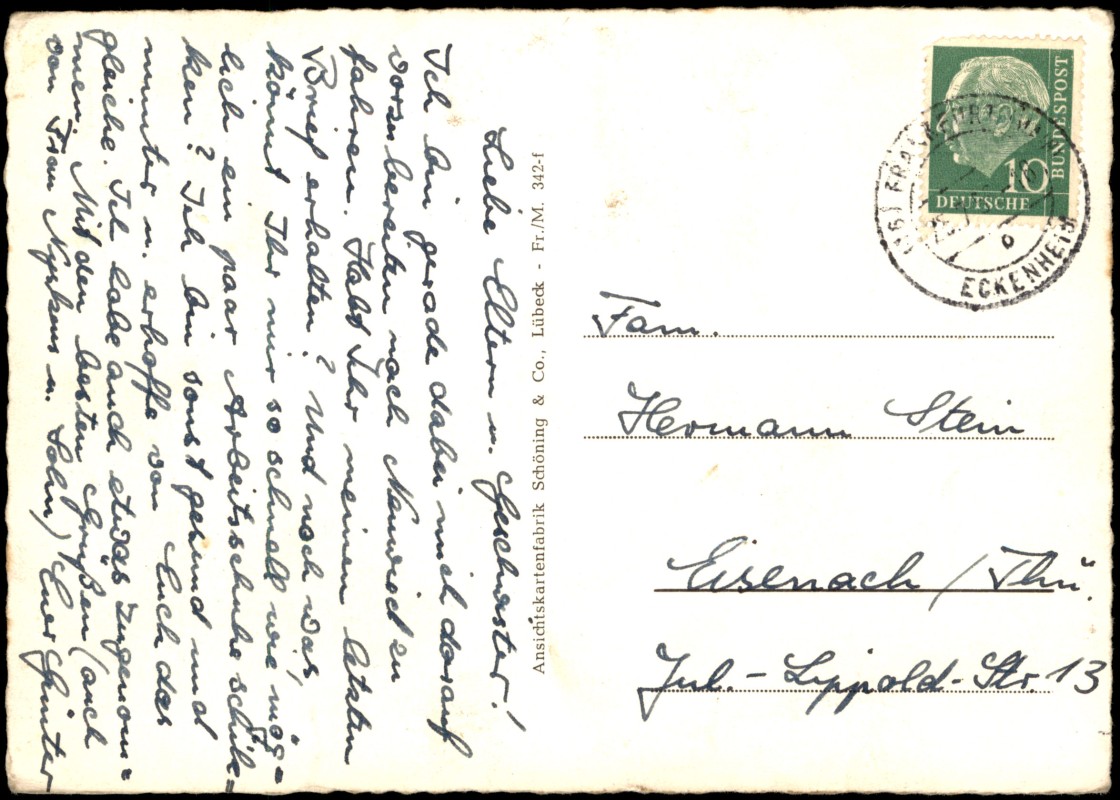 Liebe Eltern u. Geschwister!
Ich bin gerade dabei mich darauf
vorzubereiten nach Neuwied zu
fahren. Habt Ihr meinen letzten
Brief erhalten? Und noch was,
könnt Ihr mir so schnell wie mög=
lich ein paar Arbeitsschuhe schik=
ken? Ich bin sonst gesund und
munter u. erhoffe von Euch das
gleiche. Ich habe auch etwas zugenom=
men. Mit den besten Grüßen (auch
von Frau u. Sohn) Euer Günter
Ansichtskartenfabrik Schöning & Co., Lübeck - Fr./M. 342-f
BUNDESPOST
10
DEUTSCHE
FRANKFURT
ECKENHEIM
Fam.
Hermann Stein
Eisenach / Thü.
Jul.-Lippold-Str. 13